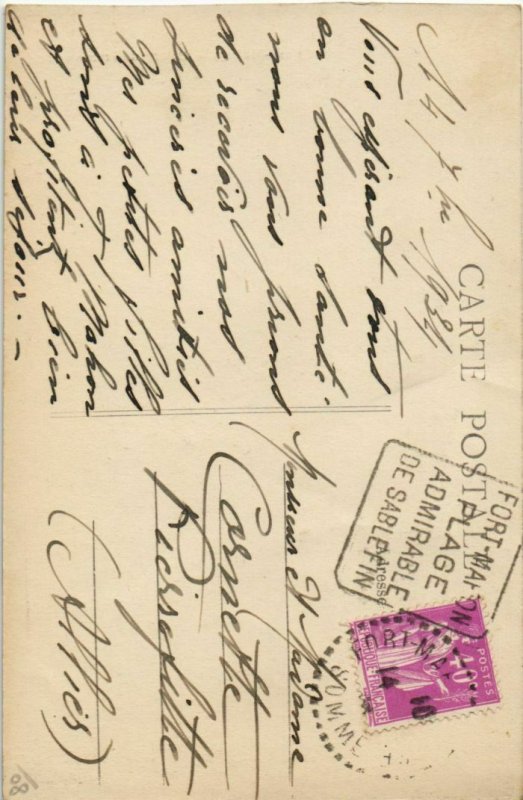 CARTE POSTALE
1934
Vous espérant tous
en bonne santé.
nous vous prions
de recevoir nos
sincères amitiés
Nos petites filles
sont à F. Mahon
et profitent bien
de leur séjour. -
FORT-MAHON
PLAGE
ADMIRABLE
DE SABLE FIN
Adresse
POSTES
40c
RÉPUBLIQUE FRANÇAISE
FORT-MAHON
14 10
SOMME
Monsieur et Madame
Carnette
Pierrefitte
(Allier)
80